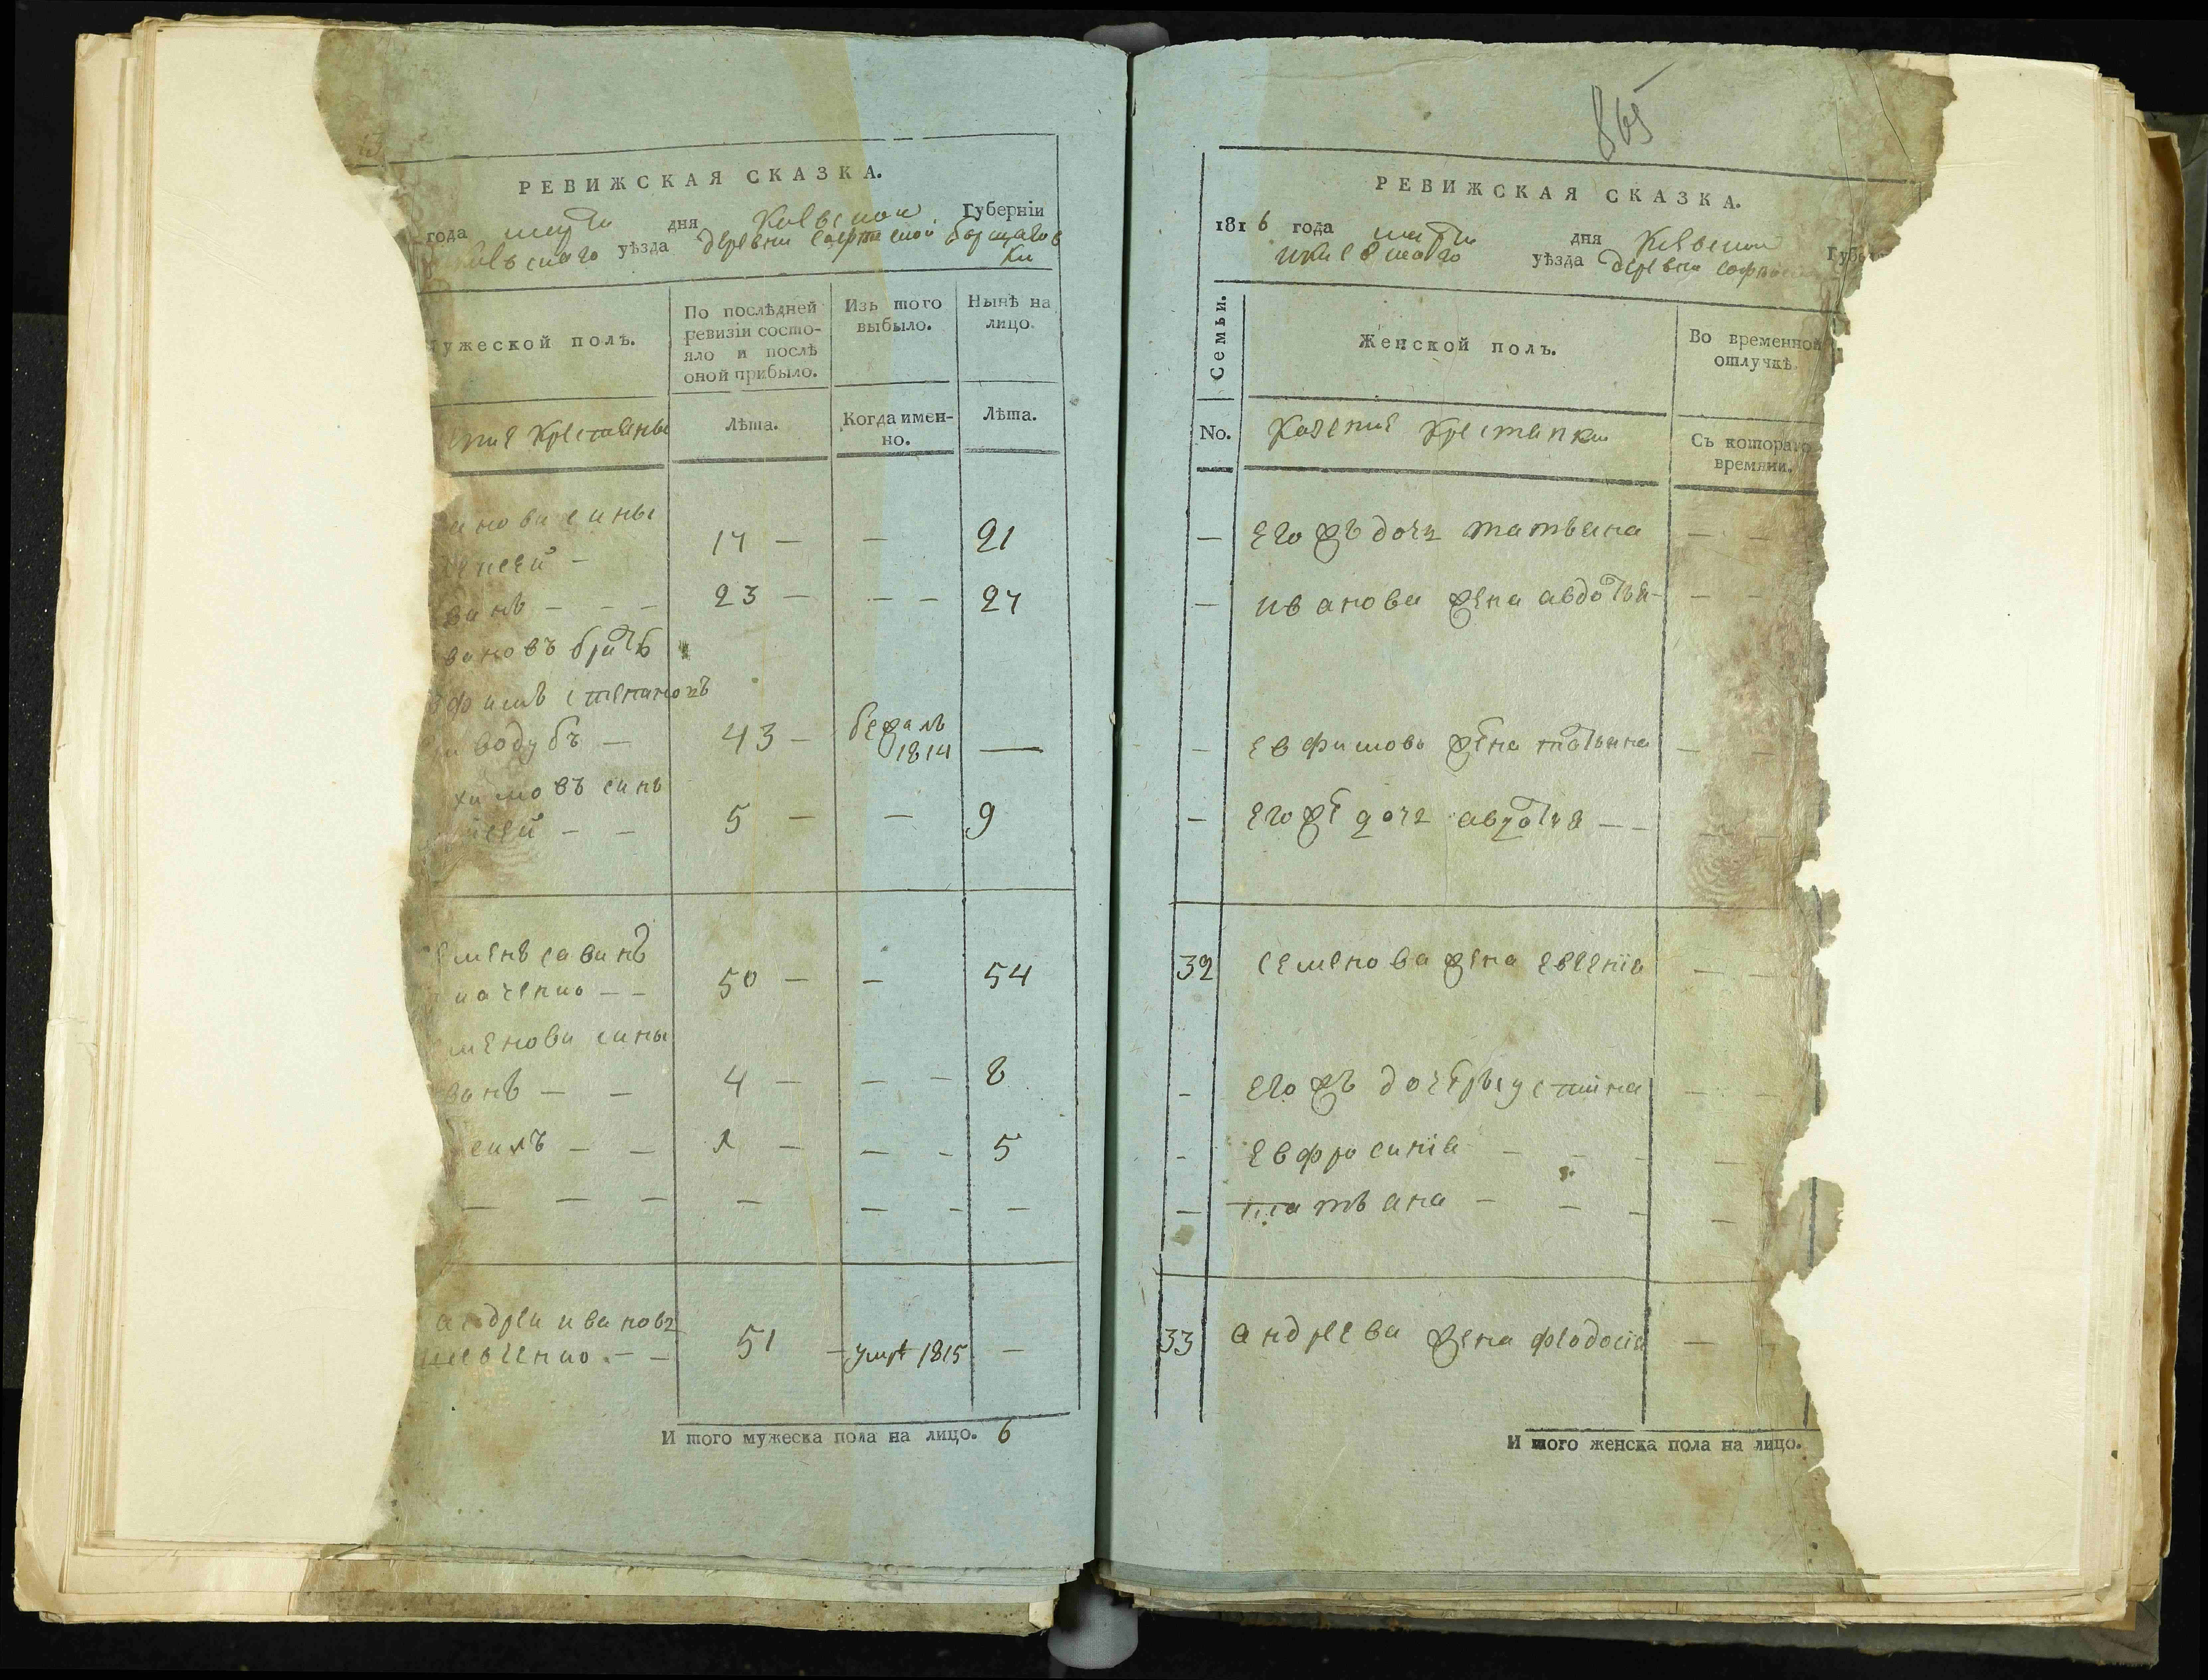 РЕВИЖСКАЯ СКАЗКА.
года марта дня Киевской Губернiи
уѣзда деревни Софiевской Борщагов
ки
ужеской полъ.
По послѣдней
ревизiи состо-
яло и послѣ
оной прибыло.
Изъ того
выбыло.
Нынѣ на
лицо.
крестьяны
Лѣта.
Когда имен-
но.
Лѣта.
анови сины
ксей —
17 — — 21
ванъ — — — 23 — — — 27
вановъ братъ
вфимъ степановъ
иводубъ — 43 — бежалъ
1814 —
химовъ синъ
ксей — — 5 — — 9
еменъ саванъ
наченко — — 50 — — 54
менови сины
ванъ — — 4 — — — 8
силъ — — 1 — — — 5
— — — — — — —
андрей иванов
шевченко — — 51 — умре 1815 —
И того мужеска пола на лицо. 6
865
РЕВИЖСКАЯ СКАЗКА.
1816 года марта дня Киевской Губе
уѣзда деревни Софиев
Семьи.
Женской полъ.
Во временной
отлучкѣ.
No.
Казенние крестянки
Съ котораго
времяни.
— его жъ дочь татьяна — —
— иванова жена авдотья — —
— евфимова жена татьяна — —
— его жъ дочь авдотия — —
32 семенова жена евгения — —
— его жъ дочеръ устина — —
— евфросинiя — — — —
— татьяна — — — —
33 андреева жена феодосiя — —
И того женска пола на лицо.